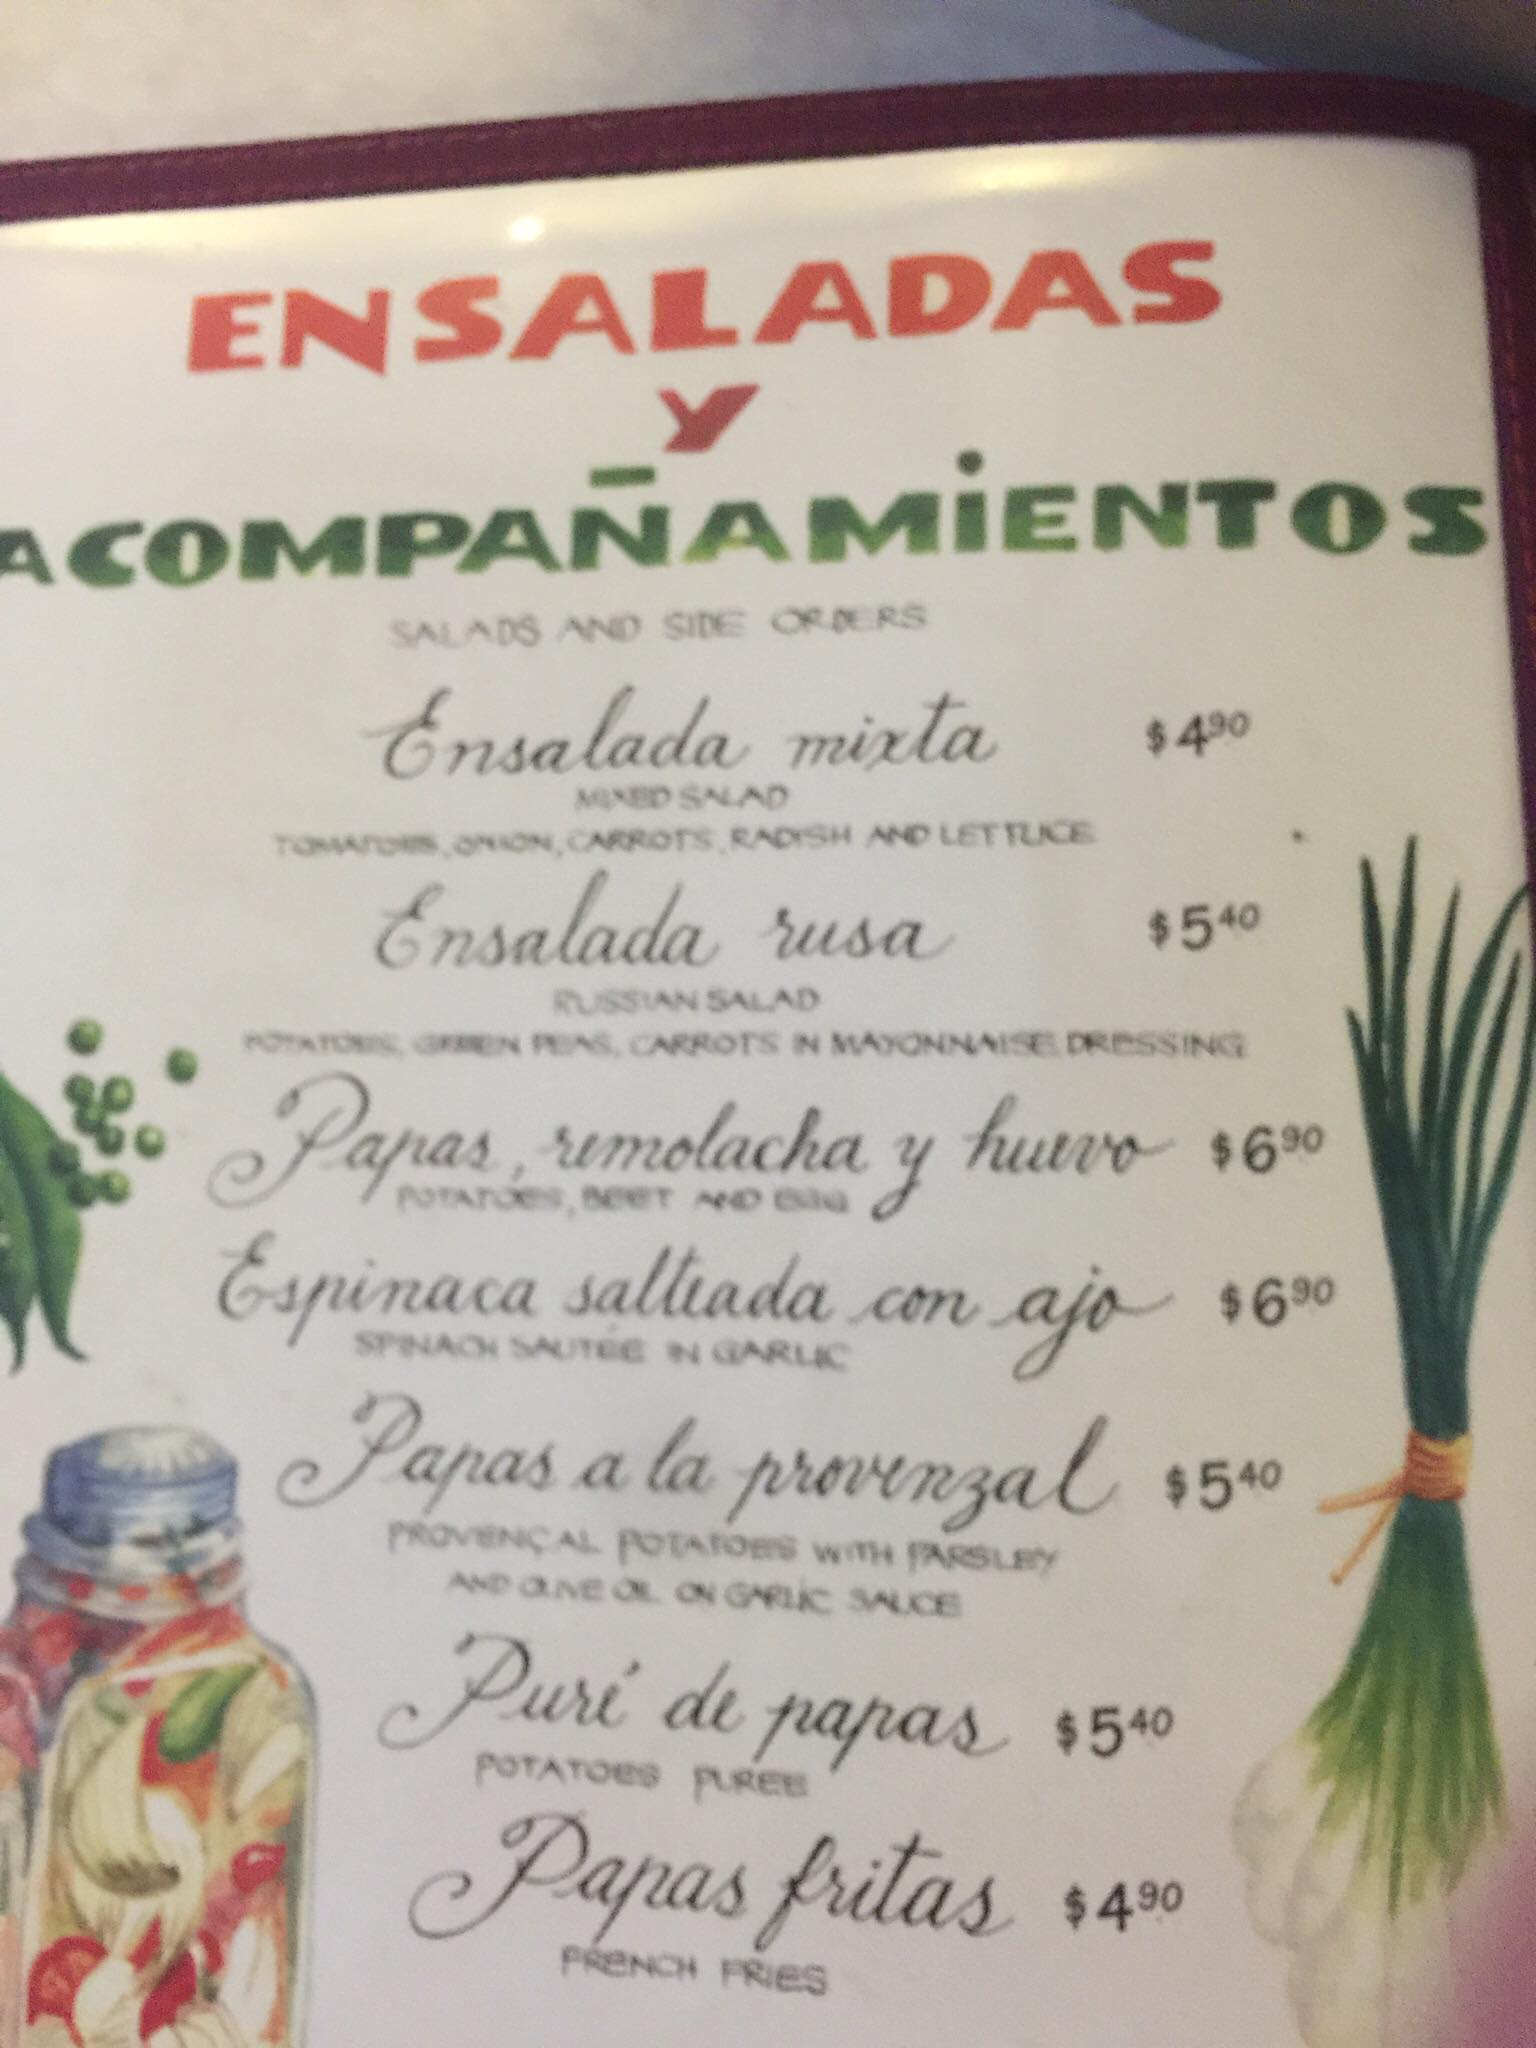 ENSALADAS
Y
ACOMPAÑAMIENTOS
SALADS AND SIDE ORDERS
Ensalada mixta $4.90
MIXED SALAD
TOMATOES, ONION, CARROTS, RADISH AND LETTUCE
Ensalada rusa $5.40
RUSSIAN SALAD
POTATOES, GREEN PEAS, CARROTS IN MAYONNAISE DRESSING
Papas, remolacha y huevo $6.90
POTATOES, BEET AND EGG
Espinaca salteada con ajo $6.90
SPINACH SAUTÉE IN GARLIC
Papas a la provenzal $5.40
PROVENÇAL POTATOES WITH PARSLEY
AND OLIVE OIL ON GARLIC SAUCE
Puré de papas $5.40
POTATOES PUREE
Papas fritas $4.90
FRENCH FRIES